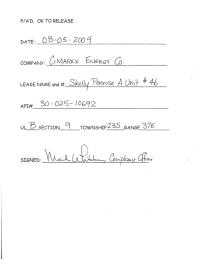 P/A'D. OK TO RELEASE
DATE: 08-05-2009
COMPANY: CIMAREX ENERGY CO.
LEASE NAME and # Skelly Penrose A Unit # 46
API# 30-025-10692
UL B SECTION 9 TOWNSHIP 23S RANGE 37E
SIGNED: Mark Whitaker Compliance Officer